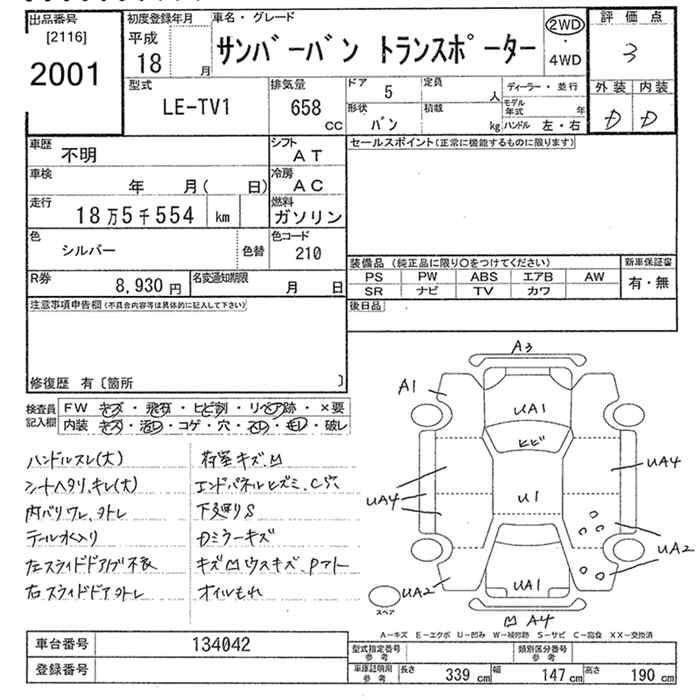 出品番号
[2116]
2001
初度登録年月
平成
18 月
車名・グレード
サンバーバン トランスポーター
2WD
・
4WD
評価点
3
外装 内装
D D
型式
LE-TV1
排気量
658
CC
ドア 5
形状 バン
定員 人
積載 kg
ディーラー・並行
モデル年式 年
ハンドル 左・右
車歴 不明
シフト AT
車検 年 月( 日)
冷房 AC
走行 18万5千554 km
燃料 ガソリン
色 シルバー 色替
色コード 210
R券 8,930 円
名変通知期限 月 日
セールスポイント(正常に機能するものに限ります)
装備品 (純正品に限り○をつけてください)
PS PW ABS エアB AW
SR ナビ TV カワ
新車保証書
有・無
後日品
注意事項申告欄(不具合内容等は具体的に記入して下さい)
修復歴 有〔箇所 〕
検査員記入欄
FW キズ・飛石・ヒビ割・リペア跡・×要
内装 キズ・汚レ・コゲ・穴・スレ・モレ・破レ
ハンドルスレ(大)
シートヘタリ、キレ(大)
内バリワレ、ヨトレ
テール水入り
左スライドドアノブ不良
右スライドドアヨトレ
荷室キズ、凹
エンドパネルヒズミ、C穴
下廻りS
Dミラーキズ
キズ凹ウスキズ、Pアト
オイルもれ
A3
A1
UA1
ヒビ
UA4
UA4
U1
UA2
UA2
UA1
スペア
凹 A4
A-キズ E-エクボ U-凹み W-補修跡 S-サビ C-腐食 XX-交換済
車台番号 134042
登録番号
型式指定番号 参考
類別区分番号 参考
車庫証明用 参考
長さ 339 cm 幅 147 cm 高さ 190 cm